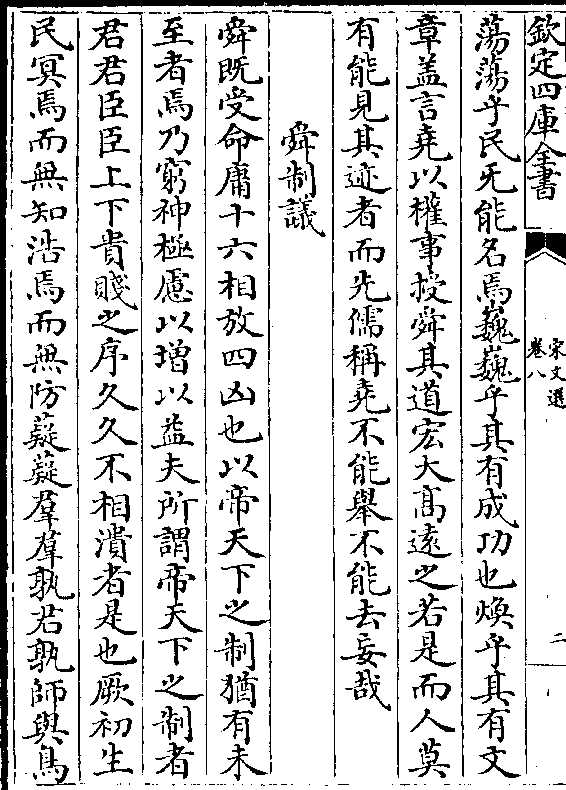 欽定四庫全書
宋文選
卷八
二
蕩蕩乎民无能名焉巍巍乎其有成功也煥乎其有文
章盖言堯以權事授舜其道宏大髙逺之若是而人莫
有能見其迹者而先儒稱堯不能舉不能去妄哉
舜制議
舜既受命庸十六相放四凶也以帝天下之制猶有未
至者焉乃窮神極慮以增以益夫所謂帝天下之制者
君君臣臣上下貴賤之序久久不相瀆者是也厥初生
民冥焉而無知浩焉而無防薿薿羣羣孰君孰師與鳥